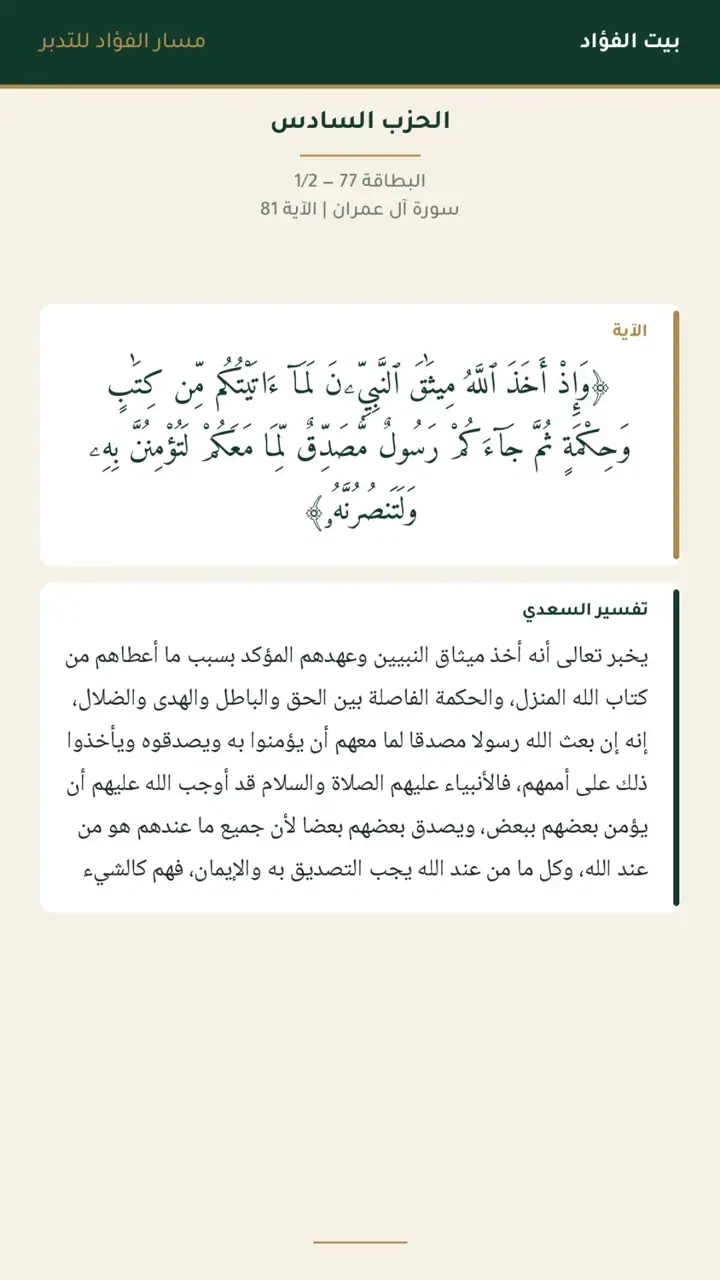 بيت الفؤاد
مسار الفؤاد للتدبر
الحزب السادس
البطاقة 77 – 1/2
سورة آل عمران | الآية 81
الآية
﴿وَإِذْ أَخَذَ ٱللَّهُ مِيثَٰقَ ٱلنَّبِيِّـۧنَ لَمَآ ءَاتَيْتُكُم مِّن كِتَٰبٍ
وَحِكْمَةٍ ثُمَّ جَآءَكُمْ رَسُولٌ مُّصَدِّقٌ لِّمَا مَعَكُمْ لَتُؤْمِنُنَّ بِهِۦ
وَلَتَنصُرُنَّهُۥ﴾
تفسير السعدي
يخبر تعالى أنه أخذ ميثاق النبيين وعهدهم المؤكد بسبب ما أعطاهم من
كتاب الله المنزل، والحكمة الفاصلة بين الحق والباطل والهدى والضلال،
إنه إن بعث الله رسولا مصدقا لما معهم أن يؤمنوا به ويصدقوه ويأخذوا
ذلك على أممهم، فالأنبياء عليهم الصلاة والسلام قد أوجب الله عليهم أن
يؤمن بعضهم ببعض، ويصدق بعضهم بعضا لأن جميع ما عندهم هو من
عند الله، وكل ما من عند الله يجب التصديق به والإيمان، فهم كالشيء